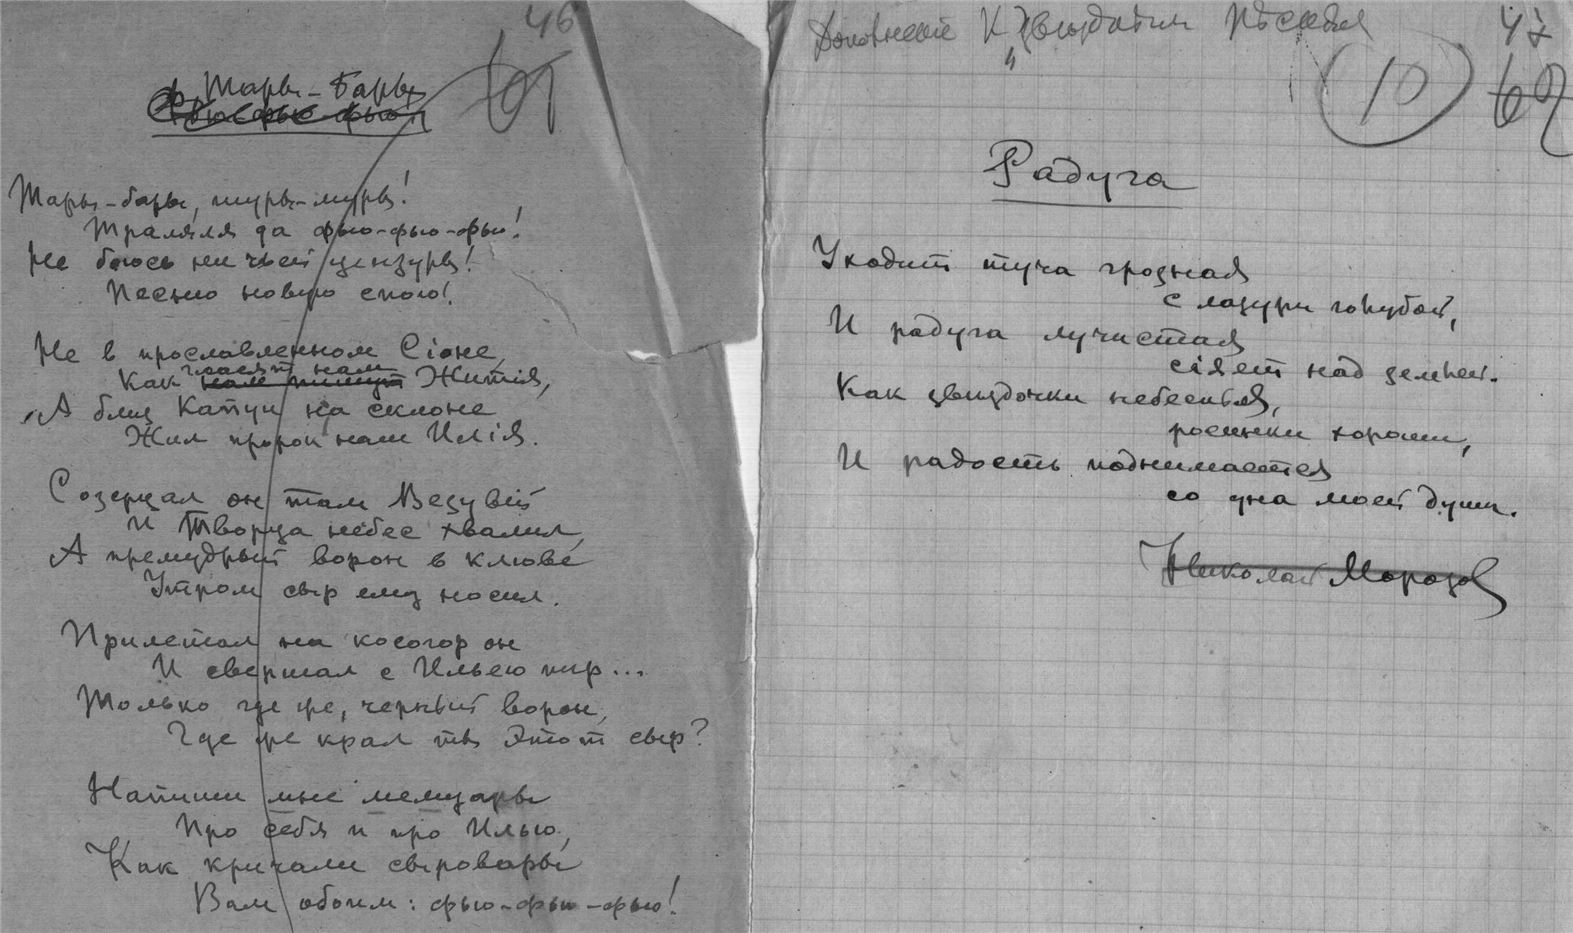 46
61
Тары-Бары
Фью-фью-фью!
Тары-бары, туры-муры!
Траляля да фью-фью-фью!
Не боюсь ни чьей цензуры!
Песню новую спою!
Не в прославленном Сіоне,
гласят нам
Как нам пишут Житія,
А близ Капуи на склоне
Жил пророк наш Илія.
Созерцал он там Везувій
И Творца небес хвалил,
А премудрый ворон в клюве
Утром сыр ему носил.
Прилетал на косогор он
И свершал с Ильею пир...
Только где же, черный ворон,
Где же крал ты этот сыр?
Напиши мне мемуары
Про себя и про Илью,
Как кричали сыровары
Вам обоим: фью-фью-фью!
К "Звездным песням
47
10
62
Радуга
Уходит туча грозная
с лазури голубой,
И радуга лучистая
сіяет над землей.
Как звездочки небесныя,
росинки хороши,
И радость поднимается
со дна моей души.
Николай Морозов